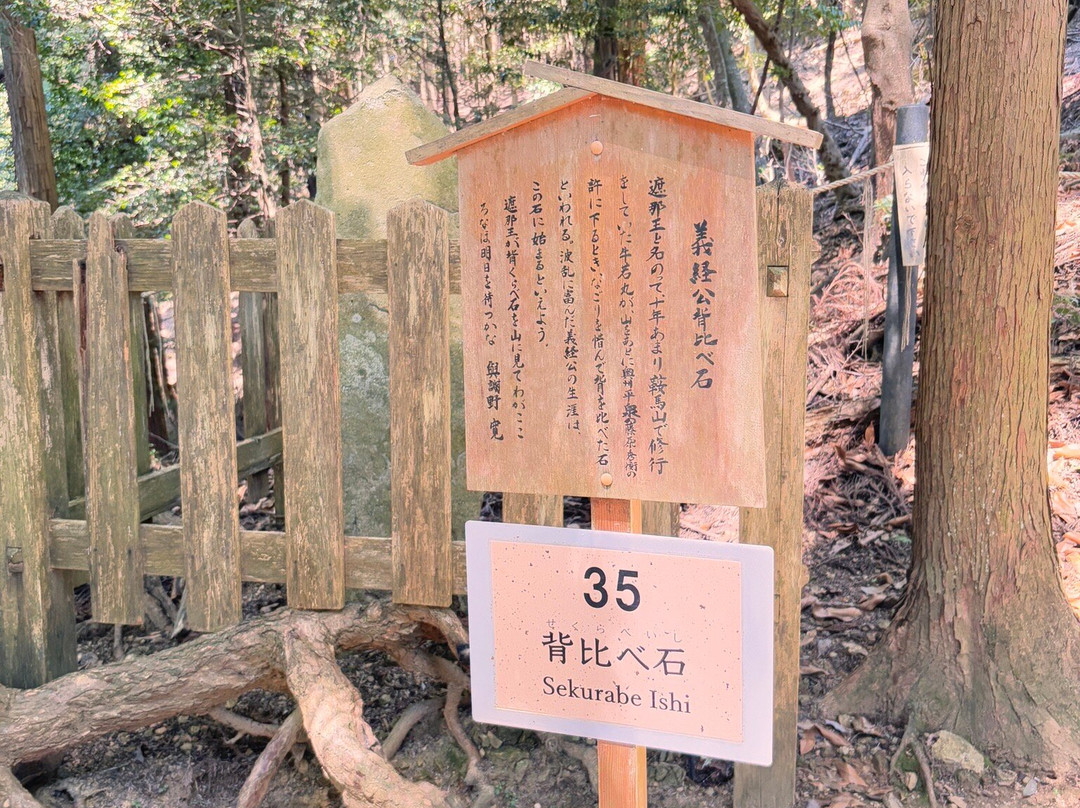 義経公背比べ石
遮那王と名のって、十年あまり鞍馬山で修行
をしていた牛若丸が、山をあとに奥州平泉藤原秀衡の
許に下るとき、なごりを惜んで背を比べた石
といわれる。波乱に富んだ義経公の生涯は、
この石に始まるといえよう。
遮那王が背くらべ石を山に見てわがこゝ
ろなほ明日を待つかな 與謝野 寛
35
せくらべいし
背比べ石
Sekurabe Ishi